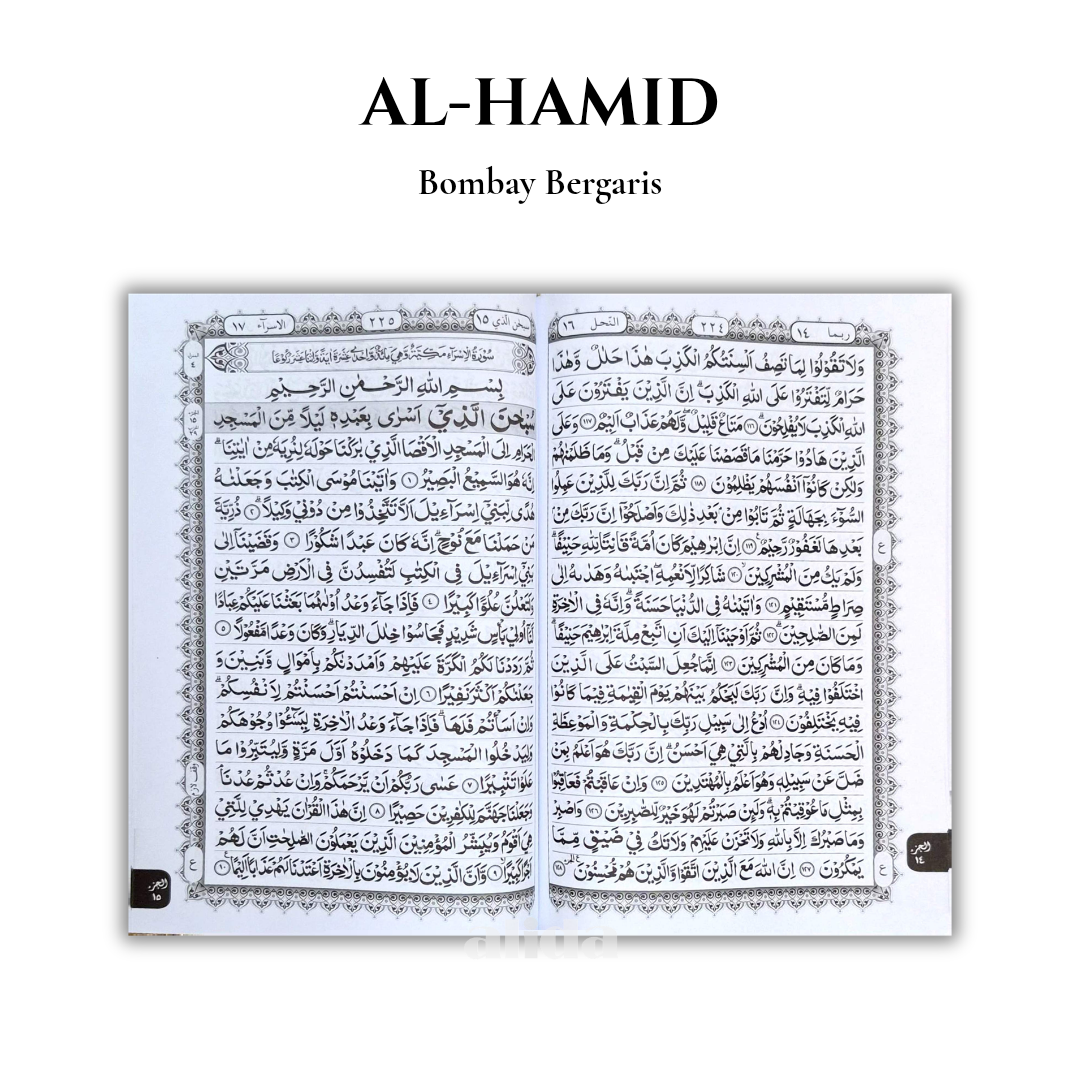 AL-HAMID
Bombay Bergaris
ربما ١٤
٢٢٤
النحل ١٦
وَلَا تَقُوْلُوْا لِمَا تَصِفُ اَلْسِنَتُكُمُ الْكَذِبَ هٰذَا حَلٰلٌ وَّهٰذَا
حَرَامٌ لِّتَفْتَرُوْا عَلَى اللّٰهِ الْكَذِبَ ۗ اِنَّ الَّذِيْنَ يَفْتَرُوْنَ عَلَى
اللّٰهِ الْكَذِبَ لَا يُفْلِحُوْنَ ۗ ١١٦ مَتَاعٌ قَلِيْلٌ ۖ وَّلَهُمْ عَذَابٌ اَلِيْمٌ ١١٧ وَعَلَى
الَّذِيْنَ هَادُوْا حَرَّمْنَا مَا قَصَصْنَا عَلَيْكَ مِنْ قَبْلُ ۗ وَمَا ظَلَمْنٰهُمْ
وَلٰكِنْ كَانُوْٓا اَنْفُسَهُمْ يَظْلِمُوْنَ ١١٨ ثُمَّ اِنَّ رَبَّكَ لِلَّذِيْنَ عَمِلُوا
السُّوْۤءَ بِجَهَالَةٍ ثُمَّ تَابُوْا مِنْۢ بَعْدِ ذٰلِكَ وَاَصْلَحُوْٓا اِنَّ رَبَّكَ مِنْۢ
بَعْدِهَا لَغَفُوْرٌ رَّحِيْمٌ ١١٩ اِنَّ اِبْرٰهِيْمَ كَانَ اُمَّةً قَانِتًا لِّلّٰهِ حَنِيْفًا ۗ
وَلَمْ يَكُ مِنَ الْمُشْرِكِيْنَ ١٢٠ شَاكِرًا لِّاَنْعُمِهٖ ۖ اِجْتَبٰىهُ وَهَدٰىهُ اِلٰى
صِرَاطٍ مُّسْتَقِيْمٍ ١٢١ وَاٰتَيْنٰهُ فِى الدُّنْيَا حَسَنَةً ۗ وَاِنَّهٗ فِى الْاٰخِرَةِ
لَمِنَ الصّٰلِحِيْنَ ۗ ١٢٢ ثُمَّ اَوْحَيْنَآ اِلَيْكَ اَنِ اتَّبِعْ مِلَّةَ اِبْرٰهِيْمَ حَنِيْفًا ۗ
وَمَا كَانَ مِنَ الْمُشْرِكِيْنَ ١٢٣ اِنَّمَا جُعِلَ السَّبْتُ عَلَى الَّذِيْنَ
اخْتَلَفُوْا فِيْهِ ۗ وَاِنَّ رَبَّكَ لَيَحْكُمُ بَيْنَهُمْ يَوْمَ الْقِيٰمَةِ فِيْمَا كَانُوْا
فِيْهِ يَخْتَلِفُوْنَ ١٢٤ اُدْعُ اِلٰى سَبِيْلِ رَبِّكَ بِالْحِكْمَةِ وَالْمَوْعِظَةِ
الْحَسَنَةِ وَجَادِلْهُمْ بِالَّتِيْ هِيَ اَحْسَنُ ۗ اِنَّ رَبَّكَ هُوَ اَعْلَمُ بِمَنْ
ضَلَّ عَنْ سَبِيْلِهٖ وَهُوَ اَعْلَمُ بِالْمُهْتَدِيْنَ ١٢٥ وَاِنْ عَاقَبْتُمْ فَعَاقِبُوْا
بِمِثْلِ مَا عُوْقِبْتُمْ بِهٖ ۗ وَلَىِٕنْ صَبَرْتُمْ لَهُوَ خَيْرٌ لِّلصّٰبِرِيْنَ ١٢٦ وَاصْبِرْ
وَمَا صَبْرُكَ اِلَّا بِاللّٰهِ وَلَا تَحْزَنْ عَلَيْهِمْ وَلَا تَكُ فِيْ ضَيْقٍ مِّمَّا
يَمْكُرُوْنَ ١٢٧ اِنَّ اللّٰهَ مَعَ الَّذِيْنَ اتَّقَوْا وَّالَّذِيْنَ هُمْ مُّحْسِنُوْنَ ١٢٨
ع
ع
الجزء
١٤
سبحن الذي ١٥
٢٢٥
الاسرآء ١٧
سُوْرَةُ الْاِسْرَاۤءِ مَكِّيَّةٌ وَّهِيَ مِائَةٌ وَّاِحْدٰى عَشَرَةَ اٰيَةً وَّاثْنَا عَشَرَ رُكُوْعًا
بِسْمِ اللّٰهِ الرَّحْمٰنِ الرَّحِيْمِ
سُبْحٰنَ الَّذِيْٓ اَسْرٰى بِعَبْدِهٖ لَيْلًا مِّنَ الْمَسْجِدِ
الْحَرَامِ اِلَى الْمَسْجِدِ الْاَقْصَا الَّذِيْ بٰرَكْنَا حَوْلَهٗ لِنُرِيَهٗ مِنْ اٰيٰتِنَا ۗ
اِنَّهٗ هُوَ السَّمِيْعُ الْبَصِيْرُ ١ وَاٰتَيْنَا مُوْسَى الْكِتٰبَ وَجَعَلْنٰهُ
هُدًى لِّبَنِيْٓ اِسْرَاۤءِيْلَ اَلَّا تَتَّخِذُوْا مِنْ دُوْنِيْ وَكِيْلًا ۗ ٢ ذُرِّيَّةَ
مَنْ حَمَلْنَا مَعَ نُوْحٍ ۗ اِنَّهٗ كَانَ عَبْدًا شَكُوْرًا ٣ وَقَضَيْنَآ اِلٰى
بَنِيْٓ اِسْرَاۤءِيْلَ فِى الْكِتٰبِ لَتُفْسِدُنَّ فِى الْاَرْضِ مَرَّتَيْنِ
وَلَتَعْلُنَّ عُلُوًّا كَبِيْرًا ٤ فَاِذَا جَاۤءَ وَعْدُ اُوْلٰىهُمَا بَعَثْنَا عَلَيْكُمْ عِبَادًا
لَّنَآ اُولِيْ بَأْسٍ شَدِيْدٍ فَجَاسُوْا خِلٰلَ الدِّيَارِ ۗ وَكَانَ وَعْدًا مَّفْعُوْلًا ٥
ثُمَّ رَدَدْنَا لَكُمُ الْكَرَّةَ عَلَيْهِمْ وَاَمْدَدْنٰكُمْ بِاَمْوَالٍ وَّبَنِيْنَ وَ
جَعَلْنٰكُمْ اَكْثَرَ نَفِيْرًا ٦ اِنْ اَحْسَنْتُمْ اَحْسَنْتُمْ لِاَنْفُسِكُمْ ۗ
وَاِنْ اَسَأْتُمْ فَلَهَا ۗ فَاِذَا جَاۤءَ وَعْدُ الْاٰخِرَةِ لِيَسُوْۤءٗا وُجُوْهَكُمْ
وَلِيَدْخُلُوا الْمَسْجِدَ كَمَا دَخَلُوْهُ اَوَّلَ مَرَّةٍ وَّلِيُتَبِّرُوْا مَا
عَلَوْا تَتْبِيْرًا ٧ عَسٰى رَبُّكُمْ اَنْ يَّرْحَمَكُمْ ۚ وَاِنْ عُدْتُّمْ عُدْنَا ۘ
وَجَعَلْنَا جَهَنَّمَ لِلْكٰفِرِيْنَ حَصِيْرًا ٨ اِنَّ هٰذَا الْقُرْاٰنَ يَهْدِيْ لِلَّتِيْ
هِيَ اَقْوَمُ وَيُبَشِّرُ الْمُؤْمِنِيْنَ الَّذِيْنَ يَعْمَلُوْنَ الصّٰلِحٰتِ اَنَّ لَهُمْ
اَجْرًا كَبِيْرًا ۙ ٩ وَّاَنَّ الَّذِيْنَ لَا يُؤْمِنُوْنَ بِالْاٰخِرَةِ اَعْتَدْنَا لَهُمْ عَذَابًا اَلِيْمًا ١٠
ع
الجزء
١٥